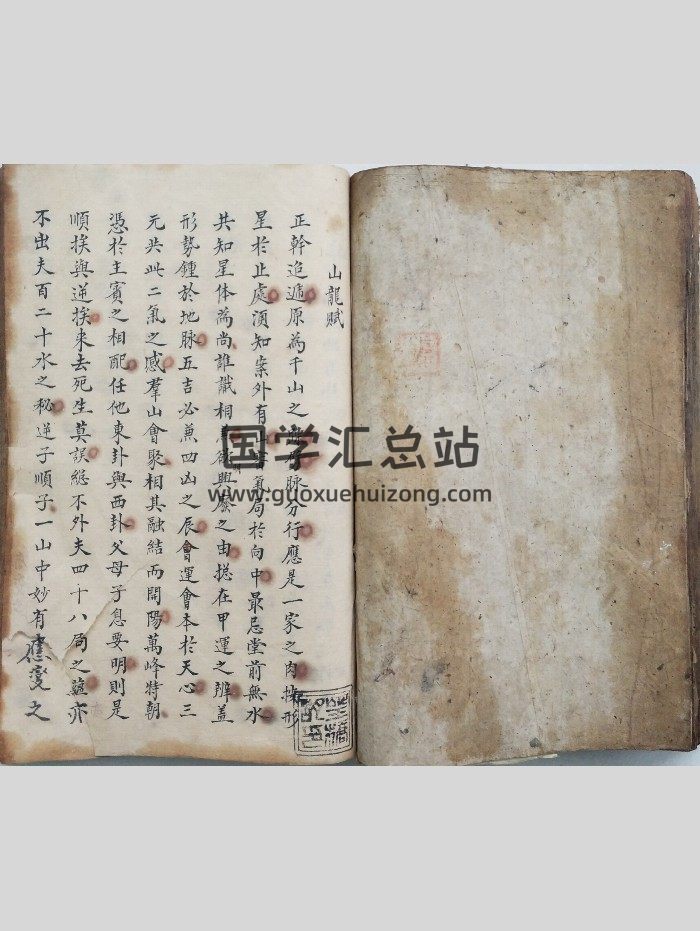 山龍賦
正幹迢遞原為千山之脈分行應是一家之肉揀形
星於止處須知案外有山氣局於向中最忌堂前無水
共知星体為尚誰識相興廢之由搃在甲運之辨盖
形勢鍾於地脉五吉必兼四凶之辰會運會本於天心三
元共此二氣之感羣山會聚相其融結而開陽萬峰特朝
憑於主賓之相配任他東卦與西卦父母子息要明則是
順挨與逆挨來去死生莫誤緫不外夫四十八局之蘊亦
不出夫百二十水之秘逆子順子一山中妙有應变之
国学汇总站
www.guoxuehuizong.com